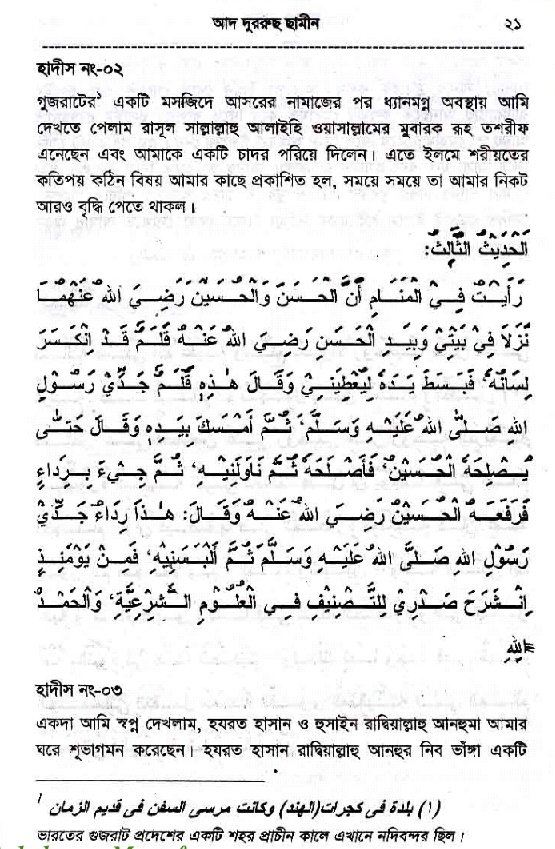 আদ দুররুছ ছামীন ২১
হাদীস নং-০২
গুজরাটের¹ একটি মসজিদে আসরের নামাজের পর ধ্যানমগ্ন অবস্থায় আমি
দেখতে পেলাম রাসূল সাল্লাল্লাহু আলাইহি ওয়াসাল্লামের মুবারক রূহ তশরীফ
এনেছেন এবং আমাকে একটি চাদর পরিয়ে দিলেন। এতে ইলমে শরীয়তের
কতিপয় কঠিন বিষয় আমার কাছে প্রকাশিত হল, সময়ে সময়ে তা আমার নিকট
আরও বৃদ্ধি পেতে থাকল।
اَلْحَدِيْثُ الثَّالِثُ:
رَأَيْتُ فِيْ الْمَنَامِ أَنَّ الْحَسَنَ وَالْحُسَيْنَ رَضِيَ اللهُ عَنْهُمَا
نَزَلَا فِيْ بَيْتِيْ وَبِيَدِ الْحَسَنِ رَضِيَ اللهُ عَنْهُ قَلَمٌ قَدْ اِنْكَسَرَ
لِسَانُهُ، فَبَسَطَ يَدَهُ لِيُعْطِيَنِيْ وَقَالَ هٰذِهِ قَلَمُ جَدِّيْ رَسُوْلِ
اللهِ صَلَّى اللهُ عَلَيْهِ وَسَلَّمَ، ثُمَّ أَمْسَكَ بِيَدِهِ وَقَالَ حَتّٰى
يُصْلِحَهُ الْحُسَيْنُ، فَأَصْلَحَهُ ثُمَّ نَاوَلَنِيْهِ، ثُمَّ جِيْءَ بِرِدَاءٍ
فَرَفَعَهُ الْحُسَيْنُ رَضِيَ اللهُ عَنْهُ وَقَالَ: هٰذَا رِدَاءُ جَدِّيْ
رَسُوْلِ اللهِ صَلَّى اللهُ عَلَيْهِ وَسَلَّمَ ثُمَّ أَلْبَسَنِيْهِ، فَمِنْ يَوْمَئِذٍ
اِنْشَرَحَ صَدْرِيْ لِلتَّصْنِيْفِ فِي الْعُلُوْمِ الشَّرْعِيَّةِ، وَالْحَمْدُ
لِلّٰهِ
হাদীস নং-০৩
একদা আমি স্বপ্ন দেখলাম, হযরত হাসান ও হুসাইন রাদ্বিয়াল্লাহু আনহুমা আমার
ঘরে শুভাগমন করেছেন। হযরত হাসান রাদ্বিয়াল্লাহু আনহুর নিব ভাঁঙ্গা একটি
¹ (١) بلدة فى كجرات(الهند) وكانت مرسى السفن فى قديم الزمان
ভারতের গুজরাট প্রদেশের একটি শহর প্রাচীন কালে এখানে নদিবন্দর ছিল।